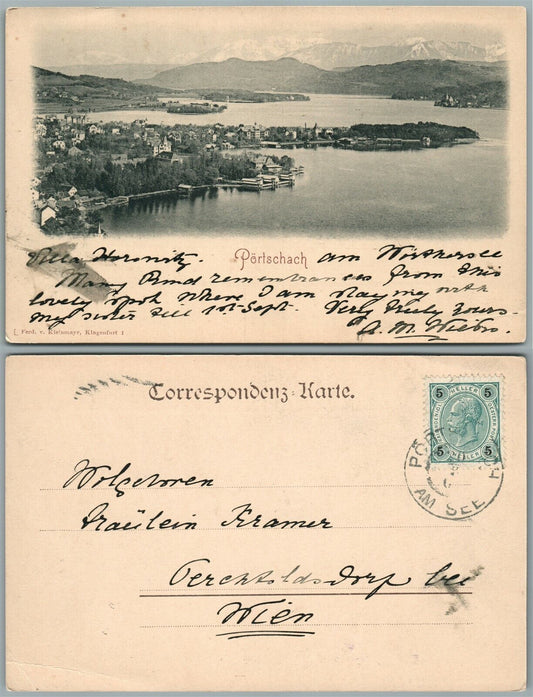 Villa Horovitz. Pörtschach am Wörthersee
Many kind remembrances from this
lovely spot where I am staying with
my sister till 1st Sept. Very truly yours.
Ferd. v. Kleinmayr, Klagenfurt 1
A. M.
Correspondenz-Karte.
5 5
HELLER
5 5
HELLER
PÖRTSCHACH
AM SEE
Wolgeboren
Fräulein Kramer
Perchtoldsdorf bei
Wien